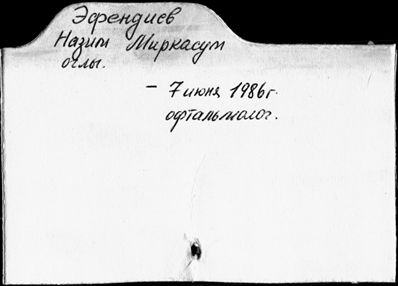 Эфендиев
Назим Миркасум
оглы.
– 7 июня 1986г.
офтальмолог.